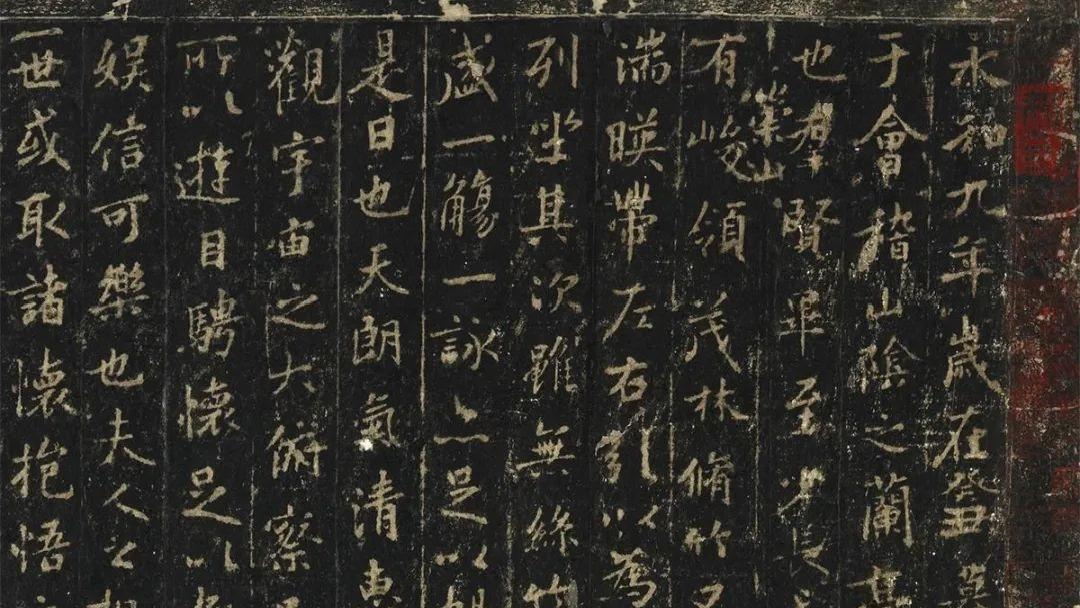 永和九年歲在癸丑暮
于會稽山陰之蘭亭
也羣賢畢至少長
有崇山峻領茂林脩竹又
湍暎帶左右引以為
列坐其次雖無絲竹
盛一觴一詠亦足以暢
是日也天朗氣清惠
觀宇宙之大俯察
所以遊目騁懷足以極
娛信可樂也夫人之相
一世或取諸懷抱悟